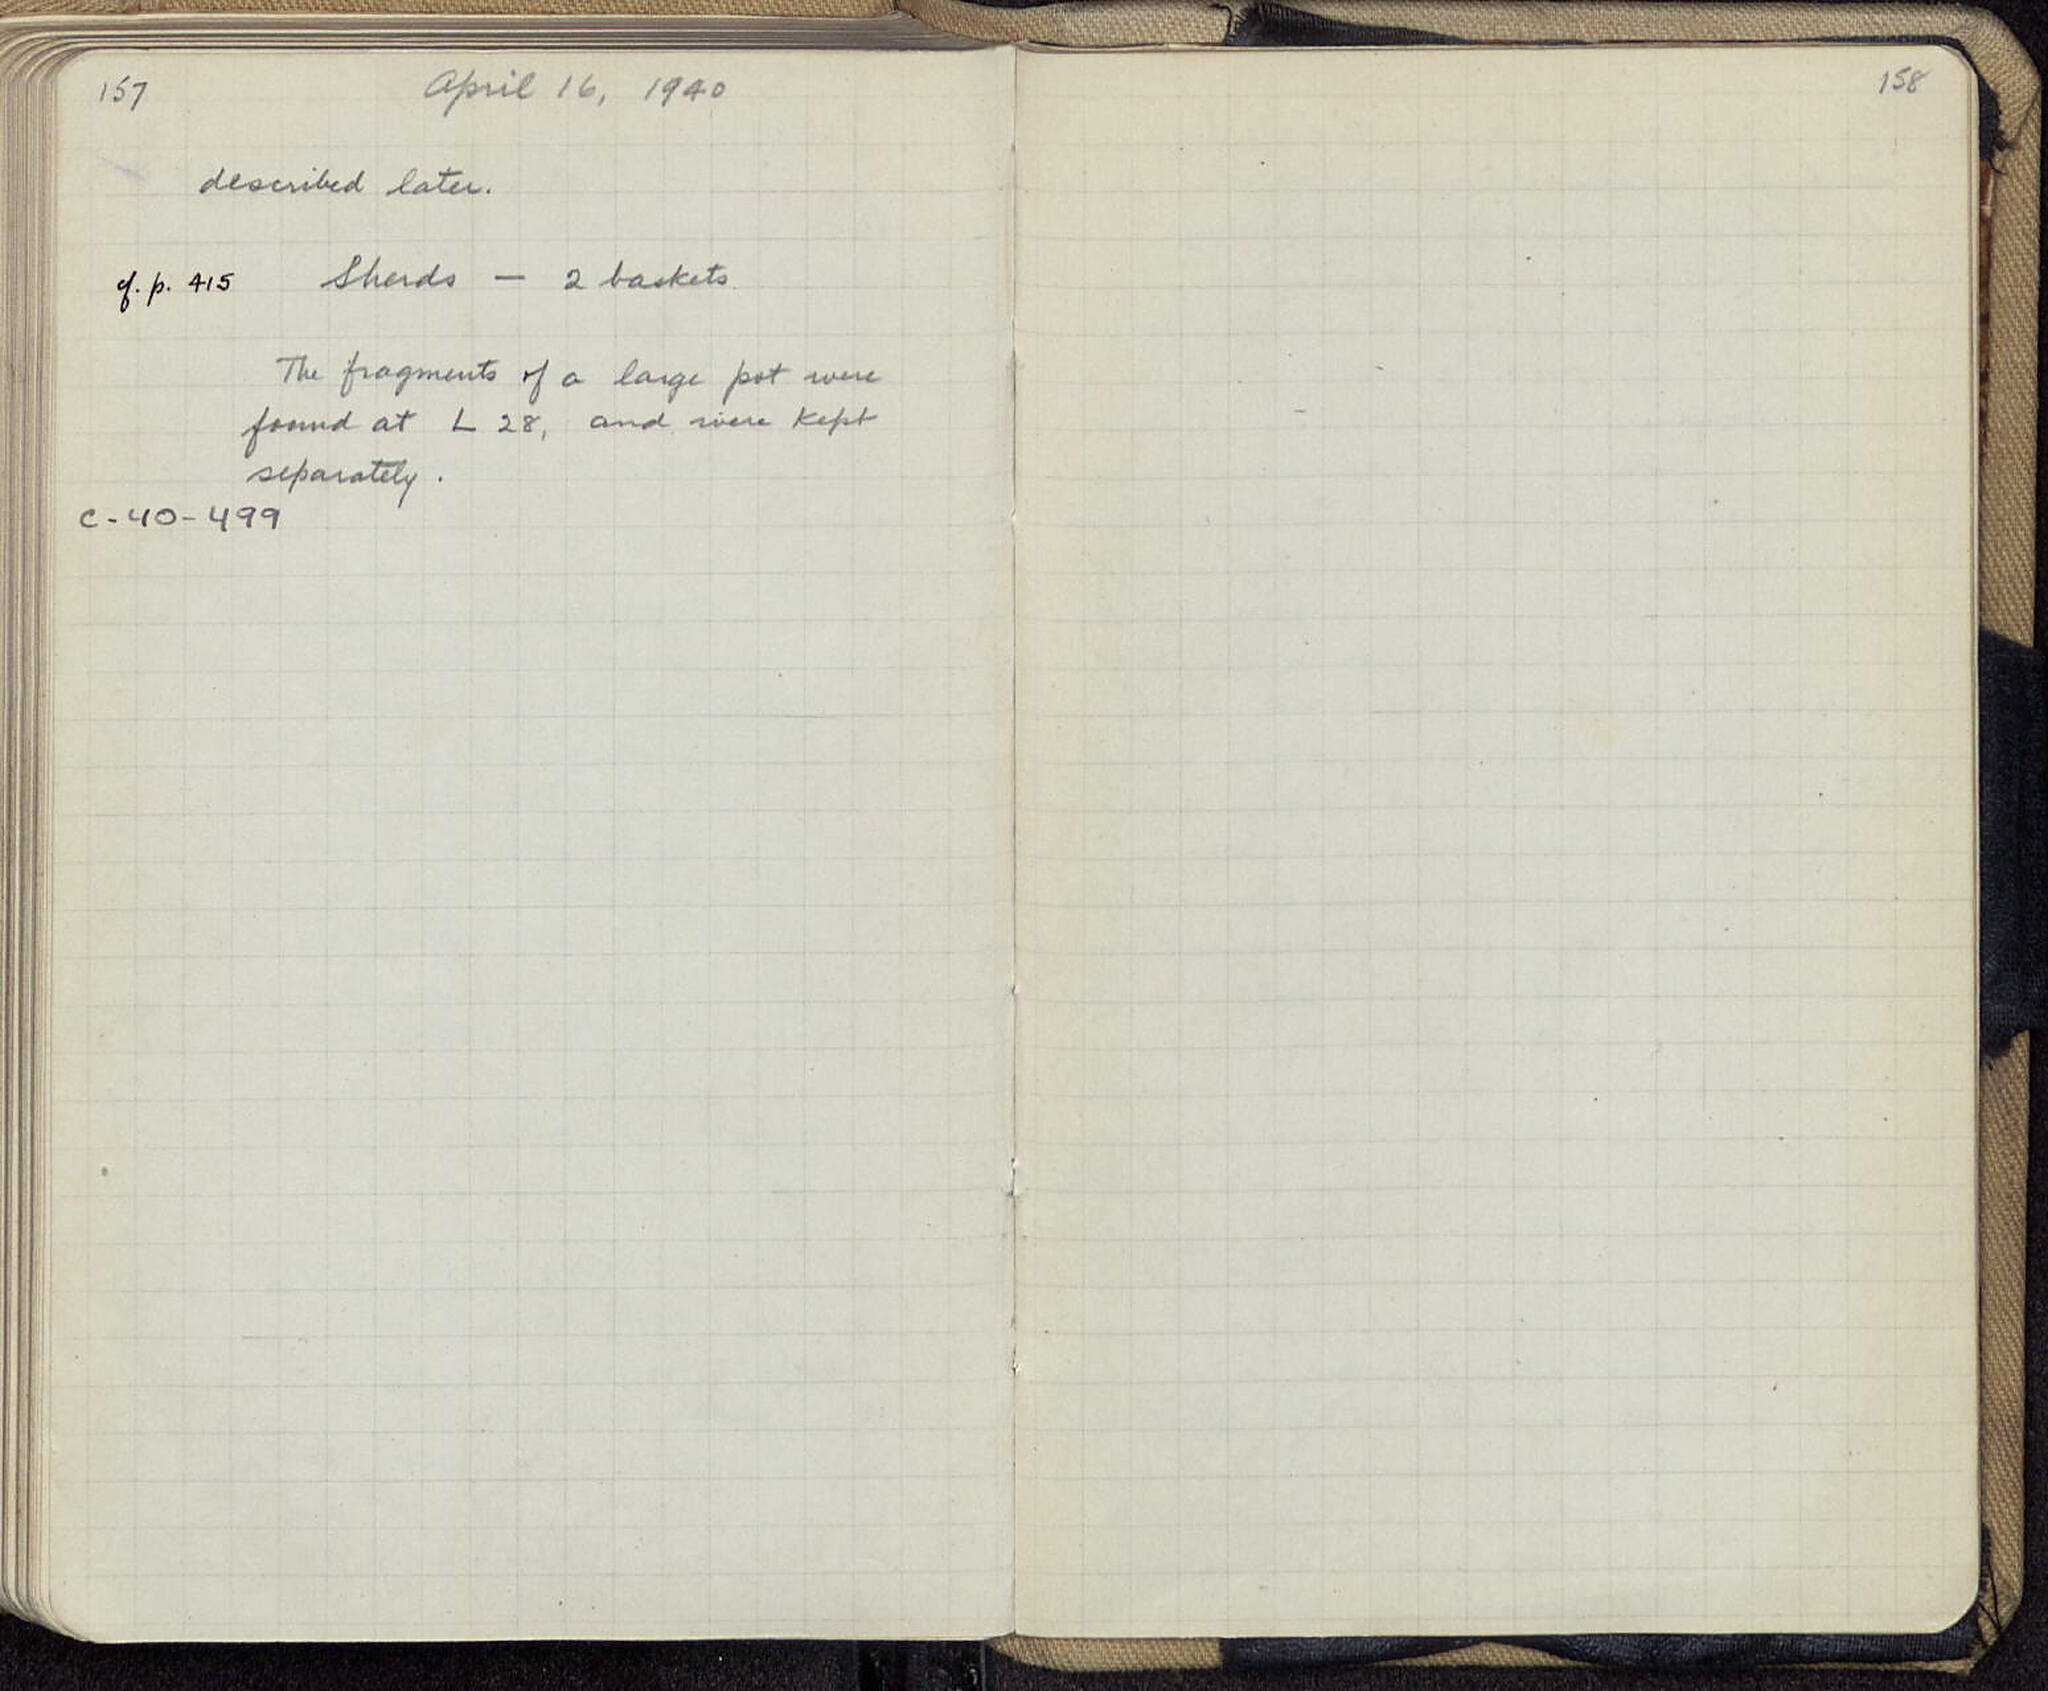 157 April 16, 1940
described later.
cf. p. 415 Sherds — 2 baskets.
The fragments of a large pot were
found at L 28, and were kept
separately.
C-40-499
158